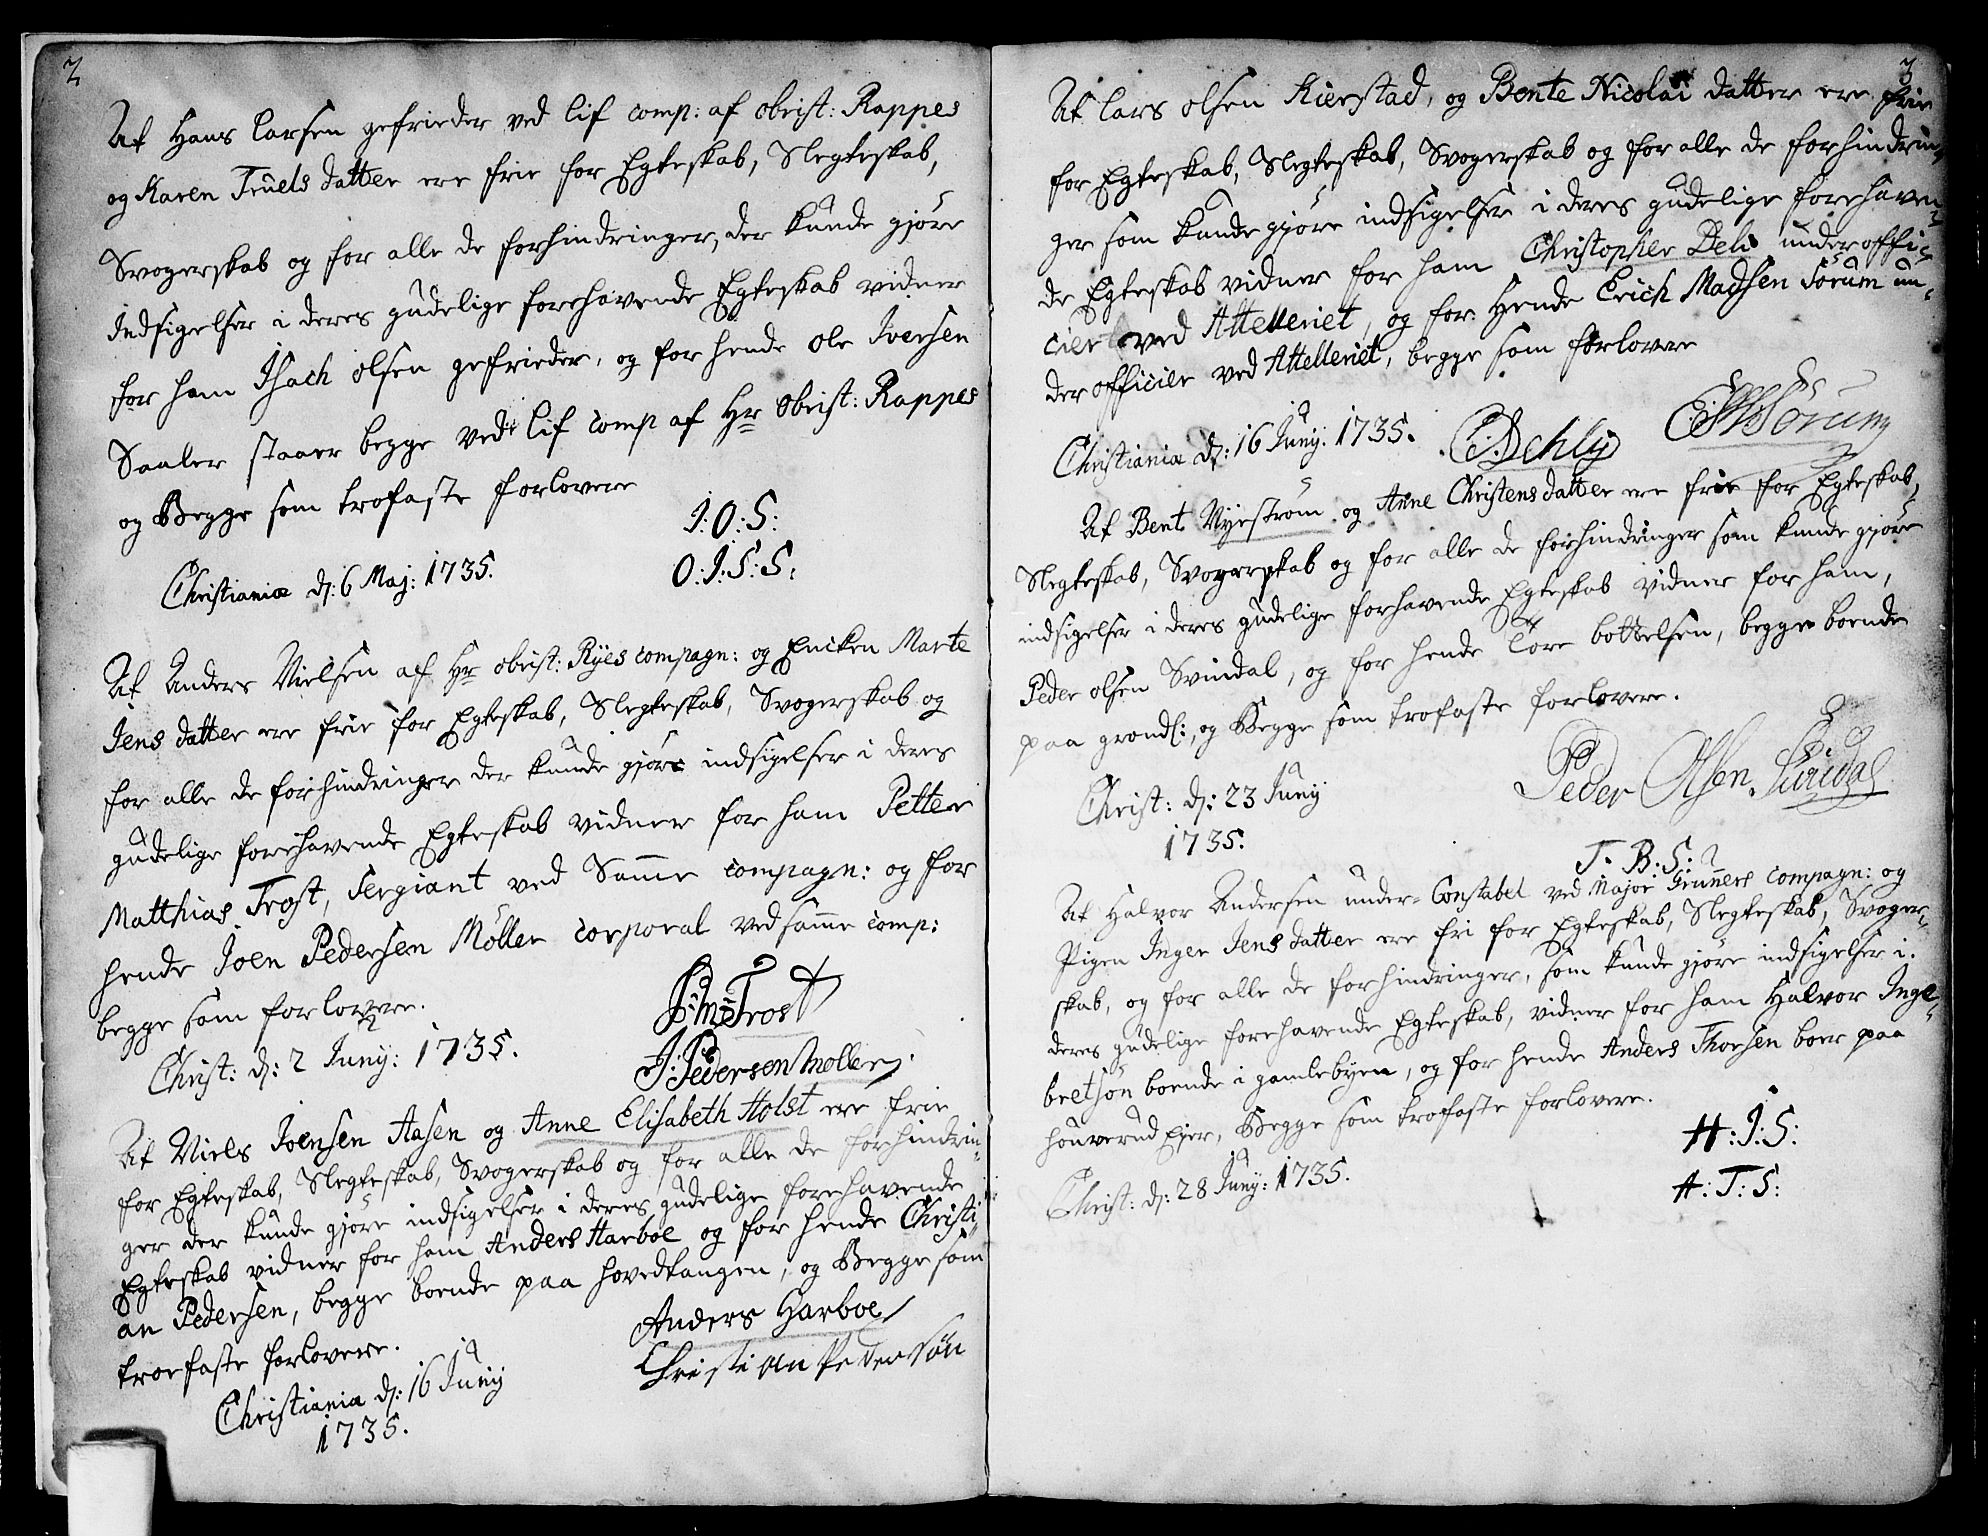 2
At Hans Larsen gefrieder ved lif comp: af obrist: Rappes
og Karen Truels datter ere frie for Egteskab, Slegteskab,
Svogerskab og for alle de forhindringer, der kunde gjöre
Indsigelser i deres gudelige forehavende Egteskab vidner
for ham Isach olsen gefrieder, og for hende ole Iversen
Saaler staaer begge ved lif comp af Hr obrist: Rappes
og Begge som trofaste forlovere
I:O:S:
Christiania d: 6 Maj: 1735.
O:I:S:S:
At Anders Nielsen af Hr obrist: Ryes compagn: og Encken Marte
Jens datter ere frie for Egteskab, Slegteskab, Svogerskab og
for alle de forhindringer der kunde gjöre indsigelser i deres
gudelige forehavende Egteskab vidner for ham Petter
Matthias Trost, Sergiant ved Samme compagn: og for
hende Joen Pedersen Möller corporal ved samme comp:
begge som forlovere.
P:M:Trost
Christ: d: 2 Juny: 1735.
J:Pedersen Møller
At Niels Joensen Aasen og Anne Elisabeth Holst ere frie
for Egteskab, Slegteskab, Svogerskab og for alle de forhindrin-
ger der kunde gjöre indsigelser i deres gudelige forehavende
Egteskab vidner for ham Anders Harboe og for hende Christi-
an Pedersen, begge boende paa hovedtangen, og Begge som
troefaste forlovere.
Anders Harboe
Christian Pedersøn
Christiania d: 16 Juny
1735.
3
At Lars olsen Kierstad, og Bente Nicolai datter ere frie
for Egteskab, Slegteskab, Svogerskab og for alle de forhindrin-
ger som kunde gjöre indsigelser i deres gudelige forehaven-
de Egteskab vidner for ham Christopher Deli underoffi-
cier ved Attelleriet, og for Hende Erich Madsen Sörum un-
der officier ved Attelleriet, begge som forlovere
Christiania d: 16 Juny: 1735.
C:Dehly
E:M:Sörum
At Bent Nyeström og Anne Christensdatter ere frie for Egteskab,
Slegteskab, Svogerskab og for alle de forhindringer som kunde gjöre
indsigelser i deres gudelige forhavende Egteskab vidner for ham,
Peder olsen Svindal, og for hende Tore bottelsen, begge boende
paa grønds:, og Begge som trofaste forlovere.
Christ: d: 23 Juny
1735.
Peder Olsen Suindal
T. B:S:
At Halvor Andersen under-Constabel ved Major Grüners compagn: og
Pigen Inger Jens datter ere fri for Egteskab, Slegteskab, Svoger-
skab, og for alle de forhindringer, som kunde gjöre indsigelser i
deres gudelige forehavende Egteskab, vidner for ham Halvor Inge-
bretsön boende i gamlebyen, og for hende Anders Thorsen boer paa
houverud Ejer, Begge som trofaste forlovere.
H:I:S:
Christ: d: 28 Juny: 1735.
A:T:S: